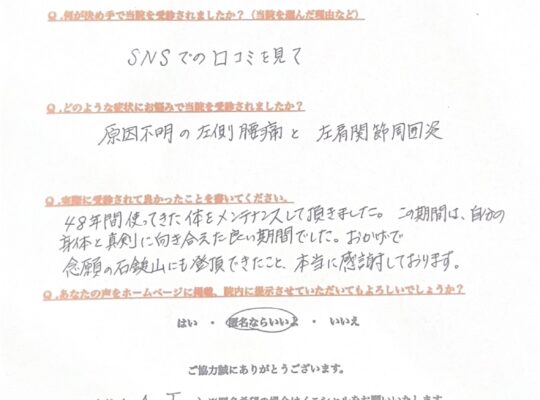 Q.何が決め手で当院を受診されましたか?（当院を選んだ理由など）
SNSでの口コミを見て
Q.どのような症状にお悩みで当院を受診されましたか?
原因不明の左側腰痛と 左肩関節周囲炎
Q.実際に受診されて良かったことを書いてください。
48年間使ってきた体をメンテナンスして頂きました。この期間は、自分の
身体と真剣に向き合えた良い期間でした。おかげで
念願の石鎚山にも登頂できたこと、本当に感謝しております。
Q.あなたの声をホームページに掲載、院内に提示させていただいてもよろしいでしょうか?
はい ・ 匿名ならいいよ ・ いいえ
ご協力誠にありがとうございます。